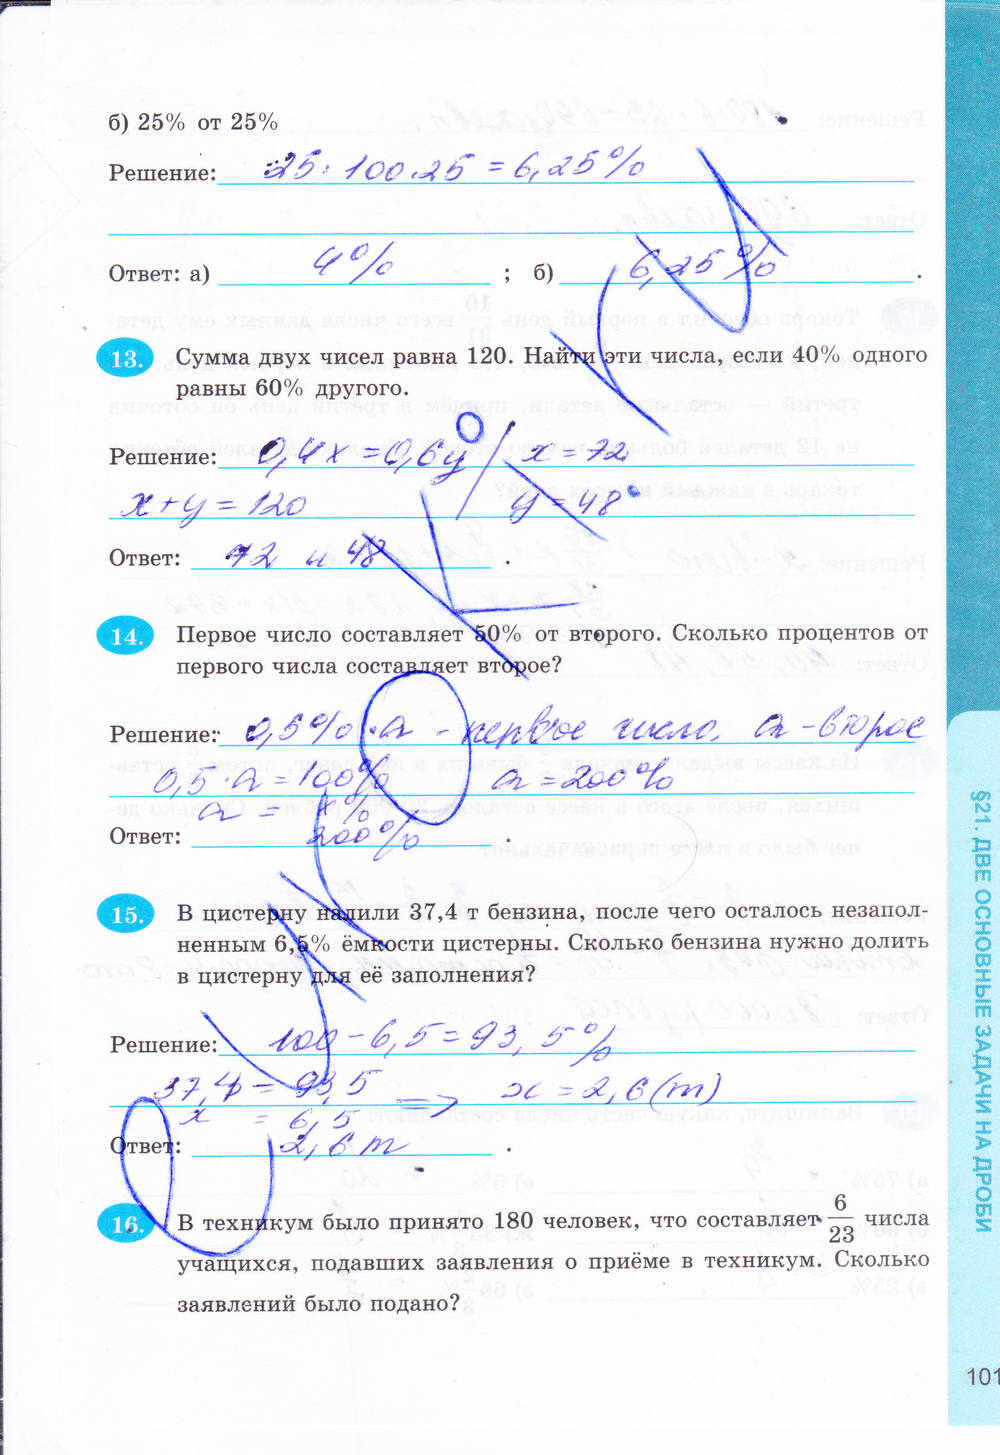 б) 25% от 25%
Решение: 25 : 100 · 25 = 6,25%
Ответ: а) 4% ; б) 6,25% .
13. Сумма двух чисел равна 120. Найти эти числа, если 40% одного
равны 60% другого.
Решение: 0,4x = 0,6y x = 72
x + y = 120 y = 48
Ответ: 72 и 48 .
14. Первое число составляет 50% от второго. Сколько процентов от
первого числа составляет второе?
Решение: 0,5% · a - первое число, a - второе
0,5 · a = 100% a = 200%
Ответ: 200% .
15. В цистерну налили 37,4 т бензина, после чего осталось незапол-
ненным 6,5% ёмкости цистерны. Сколько бензина нужно долить
в цистерну для её заполнения?
Решение: 100 - 6,5 = 93,5%
37,4 = 93,5 => x = 2,6 (т)
x = 6,5
Ответ: 2,6 т .
16. В техникум было принято 180 человек, что составляет 6/23 числа
учащихся, подавших заявления о приёме в техникум. Сколько
заявлений было подано?
§21. ДВЕ ОСНОВНЫЕ ЗАДАЧИ НА ДРОБИ
101